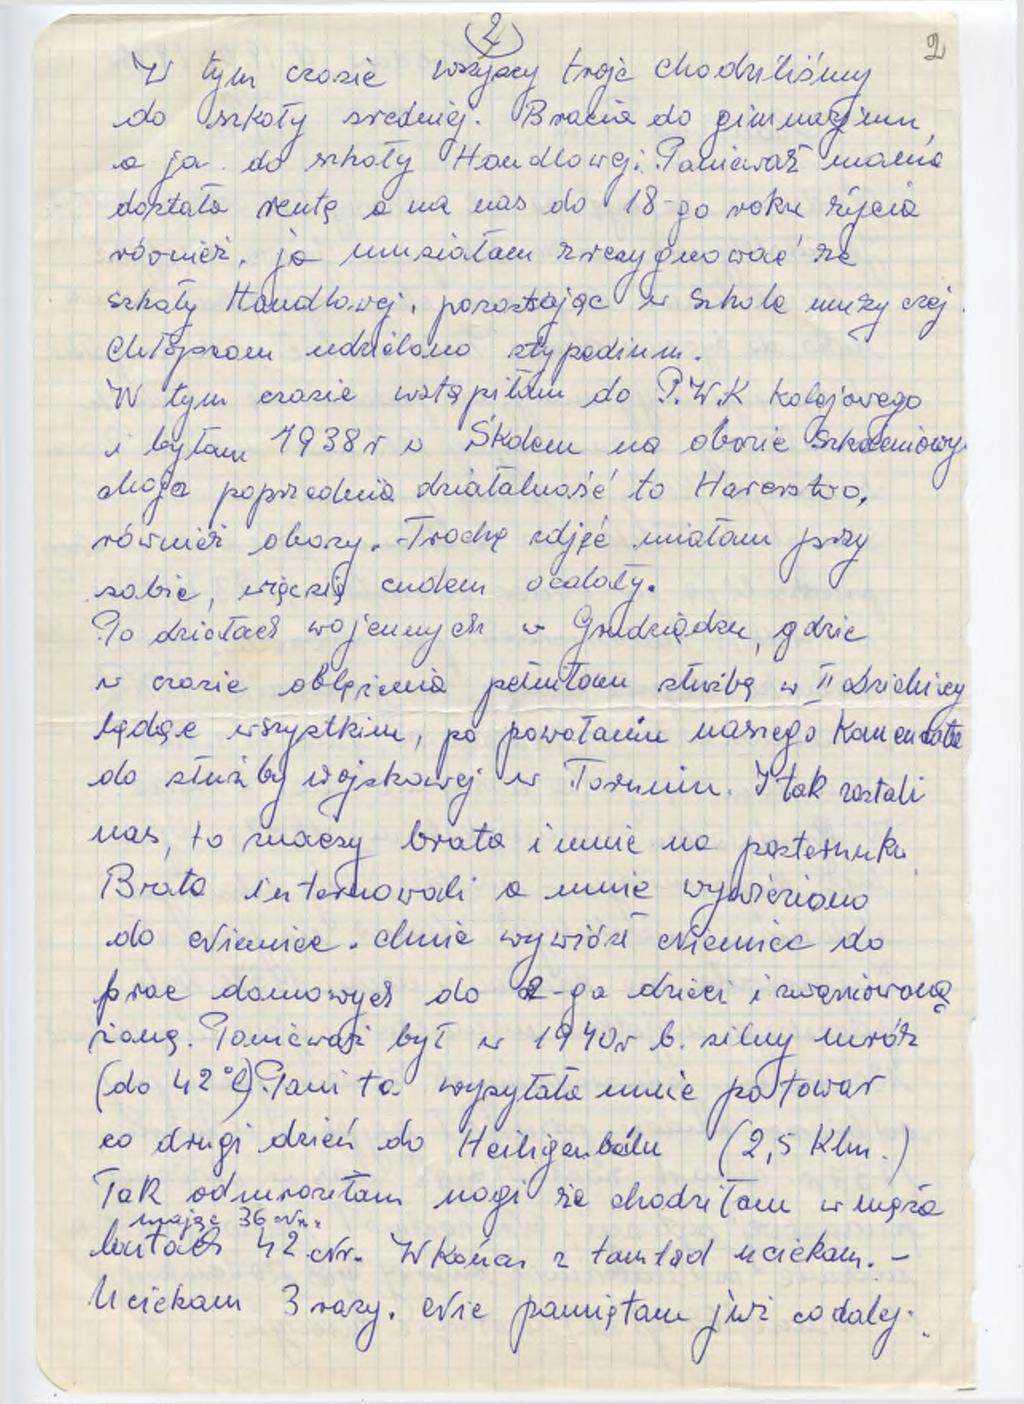 (2)
2
W tym czasie wszyscy troje chodziliśmy
do szkoły średniej. Bracia do gimnazjum,
a ja do szkoły Handlowej. Ponieważ mama
dostała rentę a na nas do 18-go roku życia
również, ja musiałam zrezygnować ze
szkoły Handlowej, pozostając w szkole muzyczej.
Chłopcom udzielono stypedium.
W tym czasie wstąpiłam do P.W.K Kolejowego
i byłam 1938r w na obozie Szkoleniowy
moja poprzednia działalność to Harerstwo,
również obozy. Trochę zdjęć miałam przy
sobie, więc się cudem ocalały.
Po działach wojennych w Grudziądzu, gdzie
w czasie oblężenia pełniłam służbę w II Dzielnicy
będąc wszystkim, po powołaniu naszego Komendata
do służby wojskowej w Toruniu. I tak zastali
nas, to znaczy brata i mnie na posterunku.
Brata internowali a mnie wywieziono
do Niemiec. Mnie wywiózł Niemiec do
prac domowych do 2-ga dzieci i
żoną. Ponieważ był w 1940r b. silny mróz
(do 42°C). Pani ta wysyłała mnie po towar
co drugi dzień do Heiligenbeilu (2,5 Klm.)
Tak odmroziłam nogi że chodziłam w męża
mając 36 Nr.
butach 42 Nr. W Końcu z tamtąd uciekam. -
Uciekam 3 razy. Nie pamiętam już co dalej.